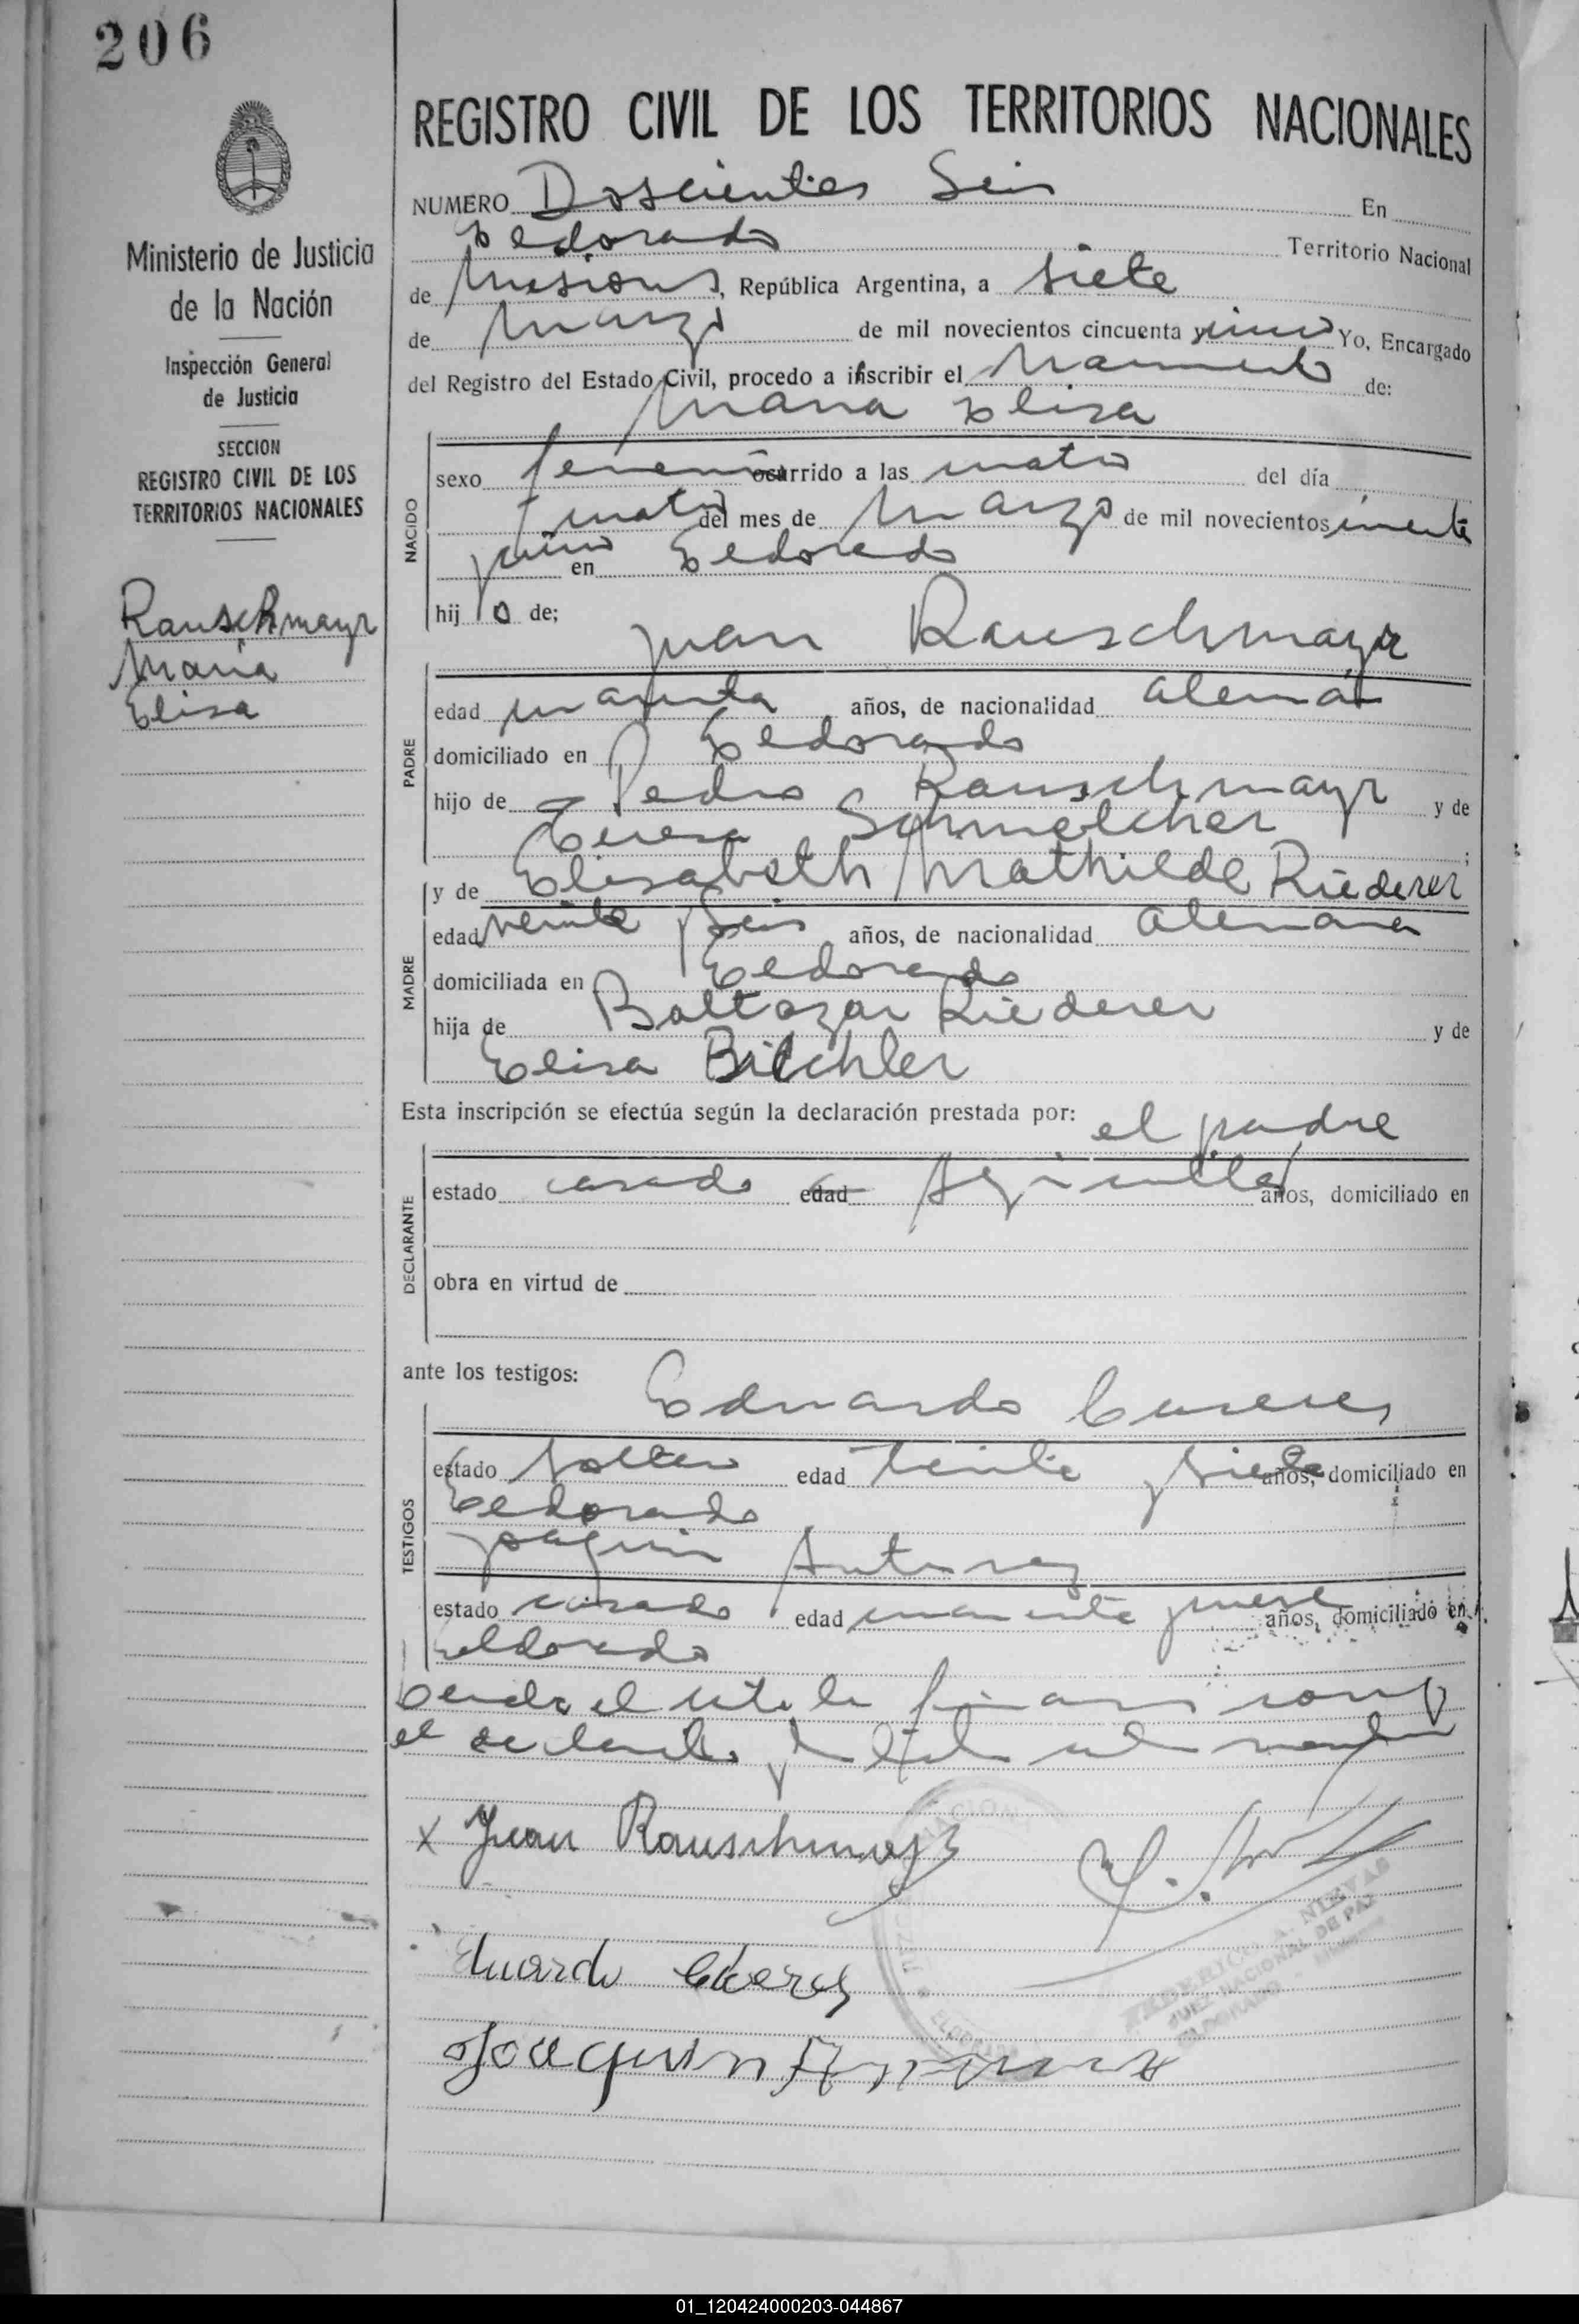 206
REGISTRO CIVIL DE LOS TERRITORIOS NACIONALES
NUMERO Doscientos Seis En
Eldorado Territorio Nacional
de Misiones, República Argentina, a siete
de Marzo de mil novecientos cincuenta y cinco Yo, Encargado
del Registro del Estado Civil, procedo a inscribir el de:
Maria Elisa
Ministerio de Justicia
de la Nación
Inspección General
de Justicia
SECCION
REGISTRO CIVIL DE LOS
TERRITORIOS NACIONALES
Rauschmayr
Maria
Elisa
NACIDO
sexo femenino ocurrido a las cuatro del día
cuatro del mes de Marzo de mil novecientos cincuenta
y cinco en Eldorado
hij o de;
Juan Rauschmayr
PADRE
edad cuarenta años, de nacionalidad alemán
domiciliado en Eldorado
hijo de Pedro Rauschmayr y de
Teresa Schmelcher;
y de Elisabeth Mathilde Riederer
MADRE
edad veinte y seis años, de nacionalidad alemana
domiciliada en Eldorado
hija de Baltazar Riederer y de
Elisa
Esta inscripción se efectúa según la declaración prestada por: el padre
DECLARANTE
estado casado edad años, domiciliado en
obra en virtud de
ante los testigos:
Eduardo
TESTIGOS
estado soltero edad y siete años, domiciliado en
Eldorado
Joaquin
estado casado edad años, domiciliado en
Eldorado
el
x Juan Rauschmayr
Eduardo
Joaquin
NIEVAS
JUEZ NACIONAL DE PAZ
ELDORADO
01_120424000203-044867